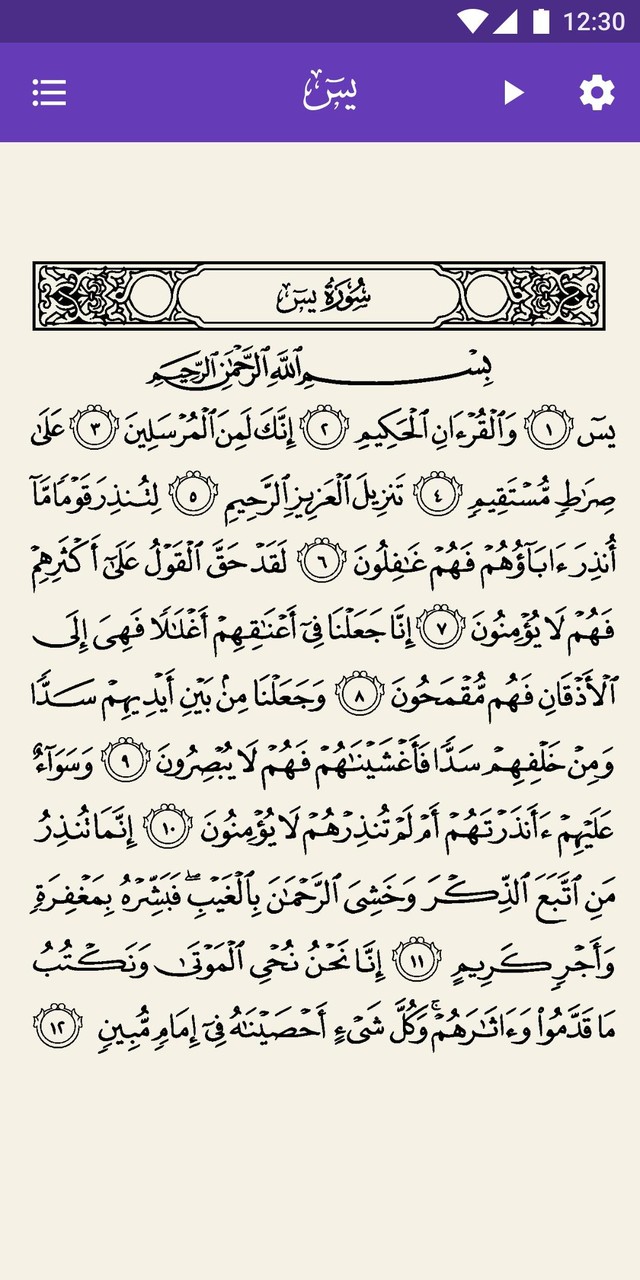 12:30
يسٓ
سُورَةُ يسٓ
بِسۡمِ ٱللَّهِ ٱلرَّحۡمَٰنِ ٱلرَّحِيمِ
يسٓ ١ وَٱلۡقُرۡءَانِ ٱلۡحَكِيمِ ٢ إِنَّكَ لَمِنَ ٱلۡمُرۡسَلِينَ ٣ عَلَىٰ
صِرَٰطٖ مُّسۡتَقِيمٖ ٤ تَنزِيلَ ٱلۡعَزِيزِ ٱلرَّحِيمِ ٥ لِتُنذِرَ قَوۡمٗا مَّآ
أُنذِرَ ءَابَآؤُهُمۡ فَهُمۡ غَٰفِلُونَ ٦ لَقَدۡ حَقَّ ٱلۡقَوۡلُ عَلَىٰٓ أَكۡثَرِهِمۡ
فَهُمۡ لَا يُؤۡمِنُونَ ٧ إِنَّا جَعَلۡنَا فِيٓ أَعۡنَٰقِهِمۡ أَغۡلَٰلٗا فَهِيَ إِلَى
ٱلۡأَذۡقَانِ فَهُم مُّقۡمَحُونَ ٨ وَجَعَلۡنَا مِنۢ بَيۡنِ أَيۡدِيهِمۡ سَدّٗا
وَمِنۡ خَلۡفِهِمۡ سَدّٗا فَأَغۡشَيۡنَٰهُمۡ فَهُمۡ لَا يُبۡصِرُونَ ٩ وَسَوَآءٌ
عَلَيۡهِمۡ ءَأَنذَرۡتَهُمۡ أَمۡ لَمۡ تُنذِرۡهُمۡ لَا يُؤۡمِنُونَ ١٠ إِنَّمَا تُنذِرُ
مَنِ ٱتَّبَعَ ٱلذِّكۡرَ وَخَشِيَ ٱلرَّحۡمَٰنَ بِٱلۡغَيۡبِۖ فَبَشِّرۡهُ بِمَغۡفِرَةٖ
وَأَجۡرٖ كَرِيمٍ ١١ إِنَّا نَحۡنُ نُحۡيِ ٱلۡمَوۡتَىٰ وَنَكۡتُبُ
مَا قَدَّمُواْ وَءَاثَٰرَهُمۡۚ وَكُلَّ شَيۡءٍ أَحۡصَيۡنَٰهُ فِيٓ إِمَامٖ مُّبِينٖ ١٢